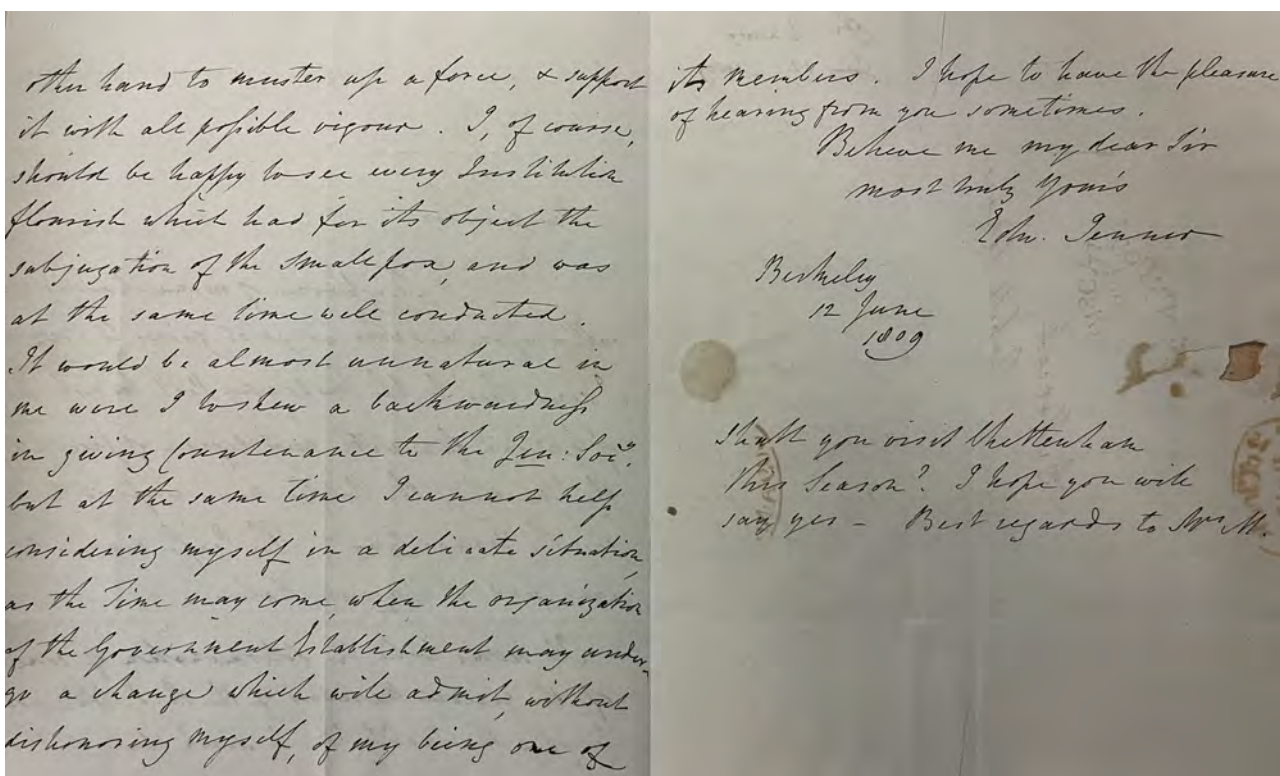 other hand to muster up a force, & support
it with all possible vigour. I, of course,
should be happy to see every Institution
flourish which had for its object the
subjugation of the Smallpox, and was
at the same time well conducted.
It would be almost unnatural in
me were I to shew a backwardness
in giving Countenance to the Jen: Socy.
but at the same time I cannot help
considering myself in a delicate situation,
as the Time may come, when the organization
of the Government Establishment may under-
go a change which will admit, without
dishonoring myself, of my being one of
its Members. I hope to have the pleasure
of hearing from you sometimes.
Believe me my dear Sir
most truly Yours
Edw. Jenner
Berkeley
12 June
1809
Shall you visit Cheltenham
this Season? I hope you will
say yes – Best regards to Mrs M.